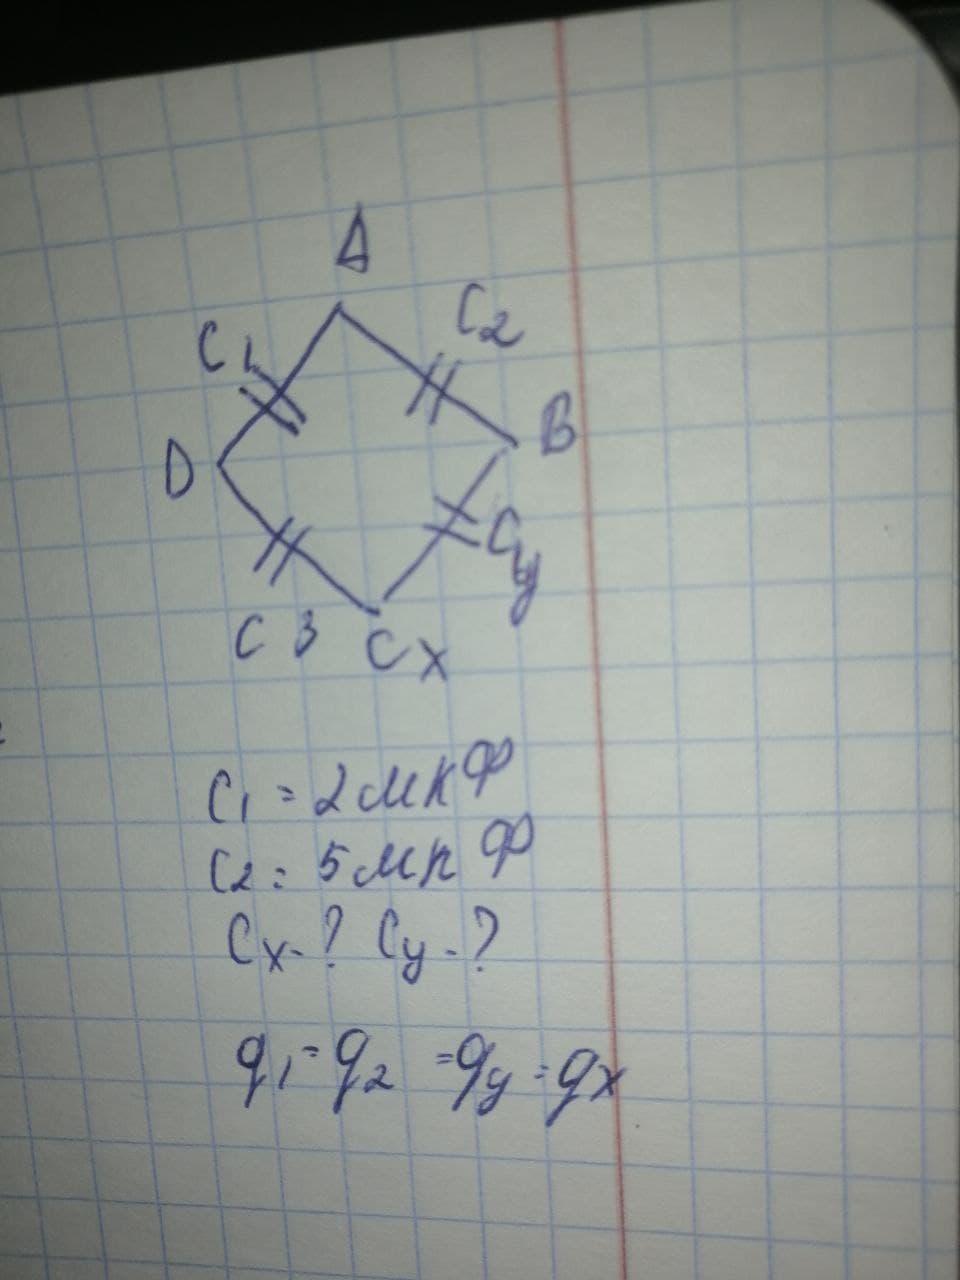 A
C1 C2
D B
Cy
C3 Cx
C1 = 2 мкФ
C2 = 5 мкФ
Cx - ? Cy - ?
q1 = q2 = qy = qx